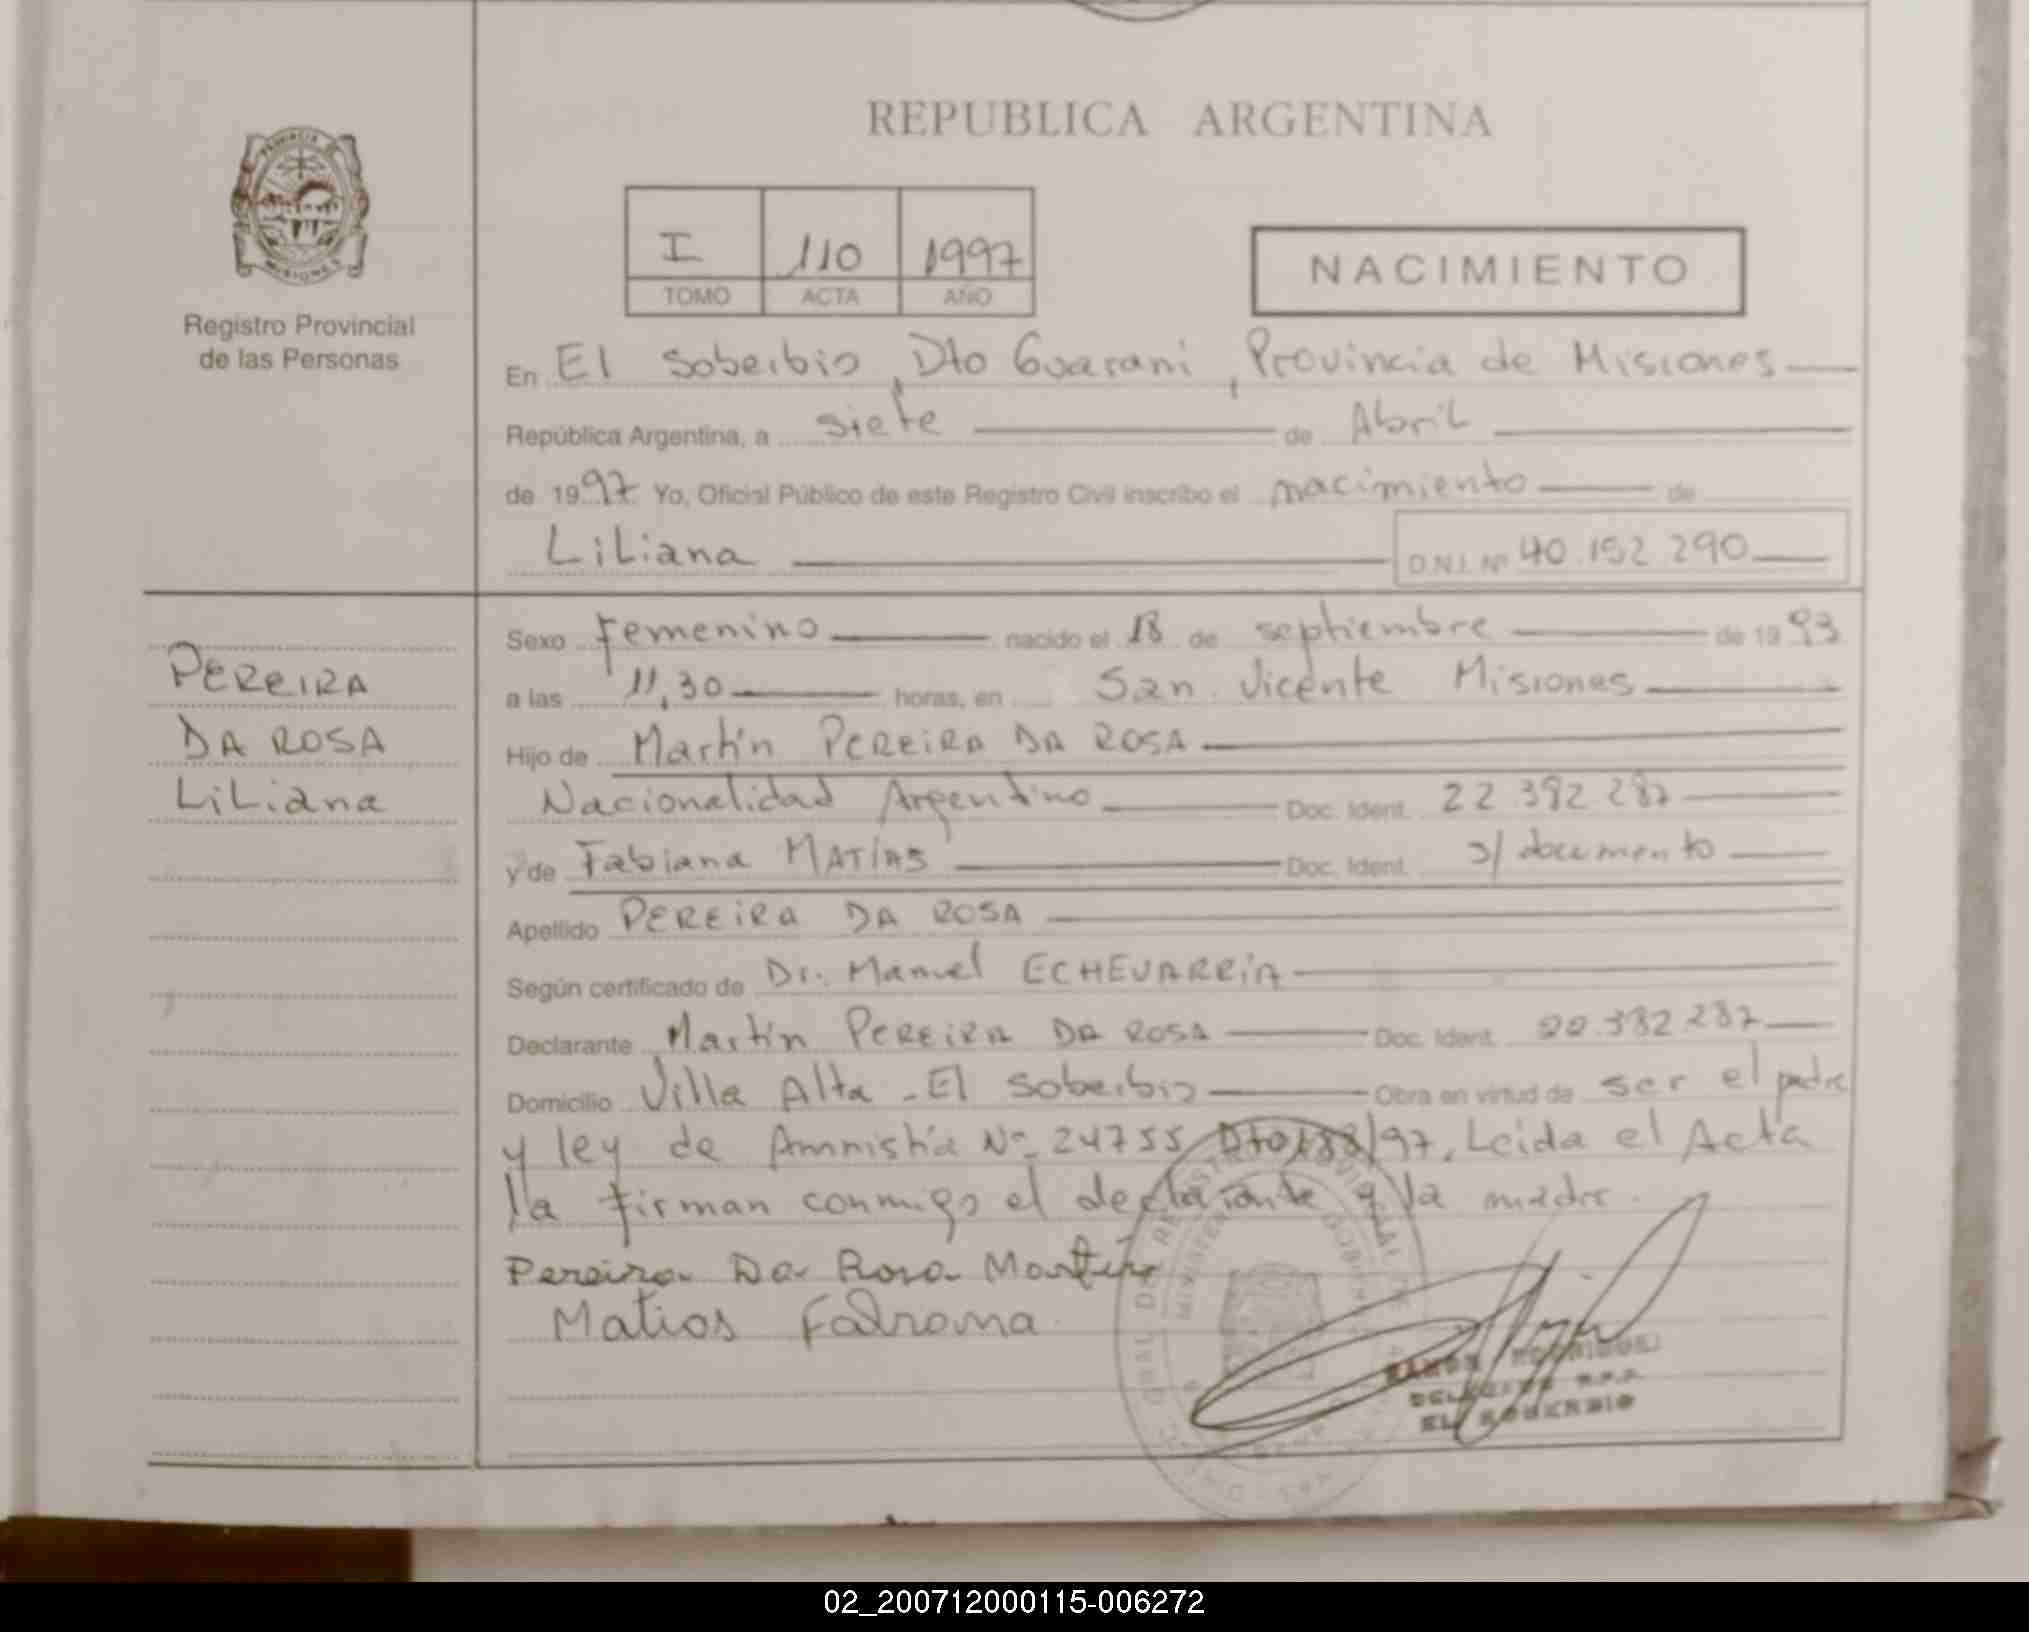 REPUBLICA ARGENTINA
PROVINCIA DE
MISIONES
Registro Provincial
de las Personas
I 110 1997
TOMO ACTA AÑO
NACIMIENTO
En El Soberbio, Dto Guarani, Provincia de Misiones
República Argentina, a siete de Abril
de 1997 Yo, Oficial Público de este Registro Civil inscribo el nacimiento de
Liliana D.N.I. Nº 40.152.290
PEREIRA
DA ROSA
Liliana
Sexo Femenino nacido el 18 de septiembre de 1993
a las 11,30 horas, en San Vicente Misiones
Hijo de Martín PEREIRA DA ROSA
Nacionalidad Argentino Doc. Ident. 22.382.287
y de Fabiana MATÍAS Doc. Ident. s/documento
Apellido PEREIRA DA ROSA
Según certificado de Dr. Manuel ECHEVARRÍA
Declarante Martín PEREIRA DA ROSA Doc. Ident. 22.382.287
Domicilio Villa Alta - El Soberbio Obra en virtud de ser el padre
y ley de Amnistía Nº 24755 Dto 188/97, Leida el Acta
la firman conmigo el declarante y la madre.
Pereira Da Rosa Martín
Matias Fabiana
RAMON RODRIGUEZ
DELEGADO R.P.P.
EL SOBERBIO
02_200712000115-006272